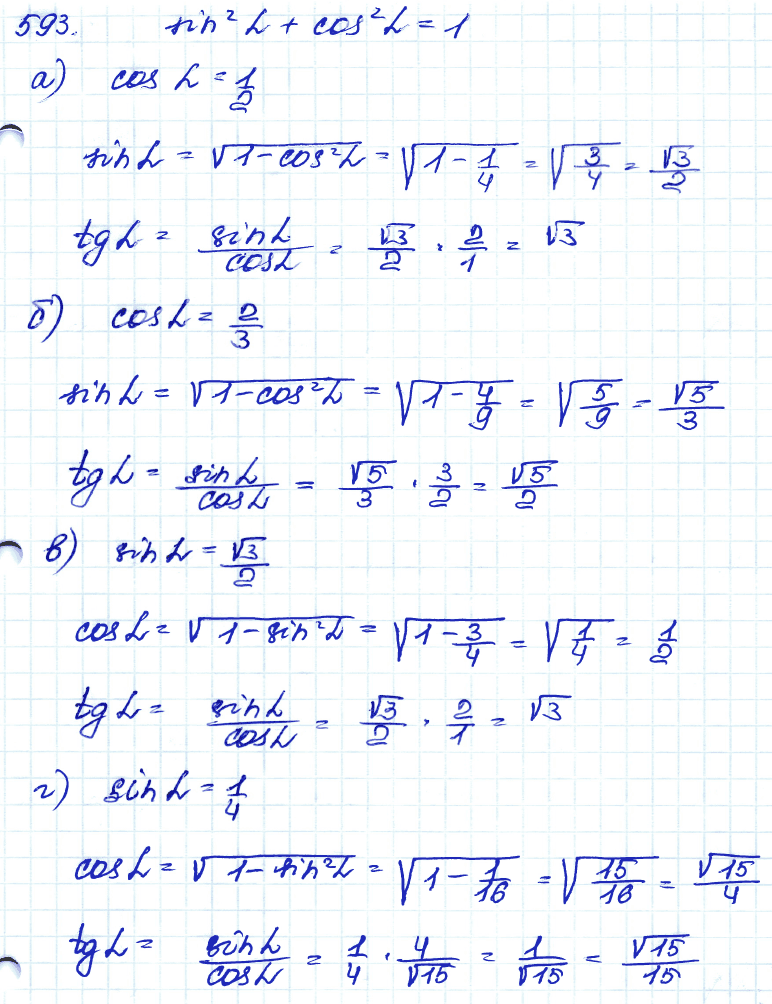 593. sin²α + cos²α = 1
а) cos α = 1/2
sin α = √(1 - cos²α) = √(1 - 1/4) = √(3/4) = √3/2
tg α = sin α/cos α = √3/2 · 2/1 = √3
б) cos α = 2/3
sin α = √(1 - cos²α) = √(1 - 4/9) = √(5/9) = √5/3
tg α = sin α/cos α = √5/3 · 3/2 = √5/2
в) sin α = √3/2
cos α = √(1 - sin²α) = √(1 - 3/4) = √(1/4) = 1/2
tg α = sin α/cos α = √3/2 · 2/1 = √3
г) sin α = 1/4
cos α = √(1 - sin²α) = √(1 - 1/16) = √(15/16) = √15/4
tg α = sin α/cos α = 1/4 · 4/√15 = 1/√15 = √15/15